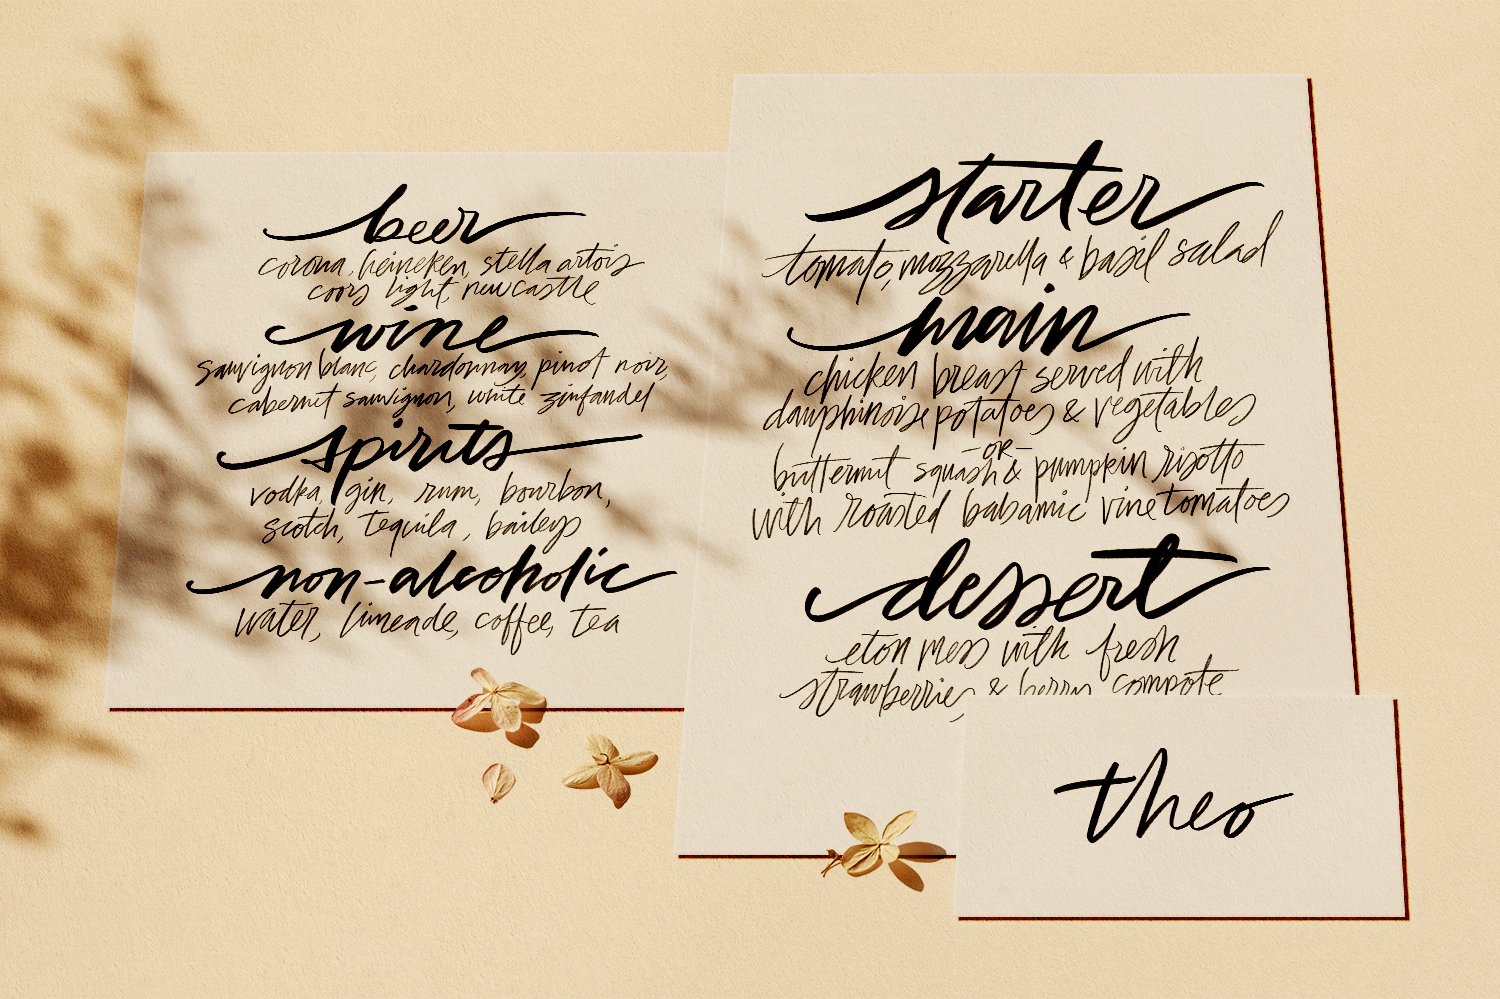 beer
corona, heineken, stella artois
coors light, newcastle
wine
sauvignon blanc, chardonnay, pinot noir,
cabernet sauvignon, white zinfandel
spirits
vodka, gin, rum, bourbon,
scotch, tequila, baileys
non-alcoholic
water, limeade, coffee, tea
starter
tomato, mozzarella & basil salad
main
chicken breast served with
dauphinoise potatoes & vegetables
-or-
butternut squash & pumpkin risotto
with roasted balsamic vine tomatoes
dessert
eton mess with fresh
strawberries, & berry compote
theo